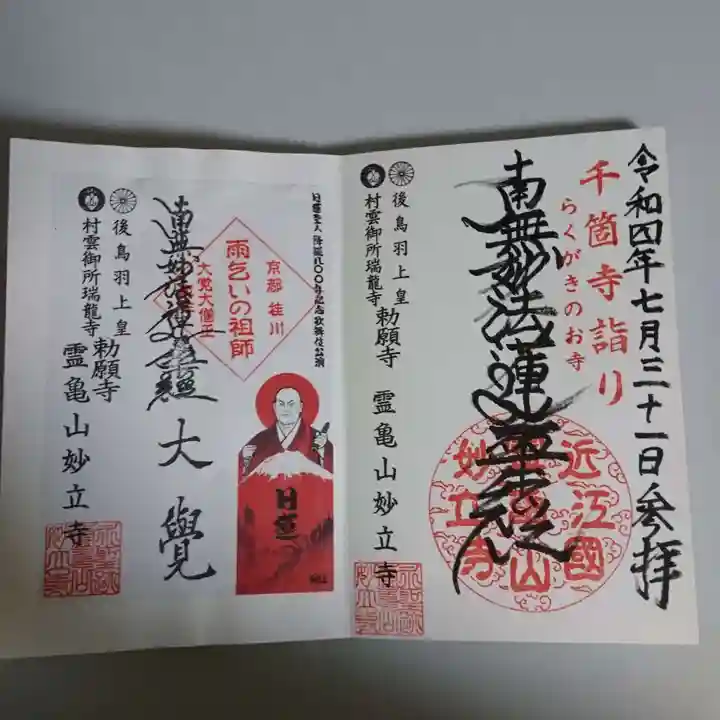 令和四年七月三十一日参拝
千箇寺詣り
らくがきのお寺
南無妙法蓮華経
近江國
霊亀山
妙立寺
後鳥羽上皇
村雲御所瑞龍寺
勅願寺
霊亀山妙立寺
日蓮聖人降誕八〇〇年記念歌舞伎公演
京都 桂川
雨乞いの祖師
大覚大僧正
日蓮
南無妙法蓮華経
大覺
後鳥羽上皇
村雲御所瑞龍寺
勅願寺
霊亀山妙立寺